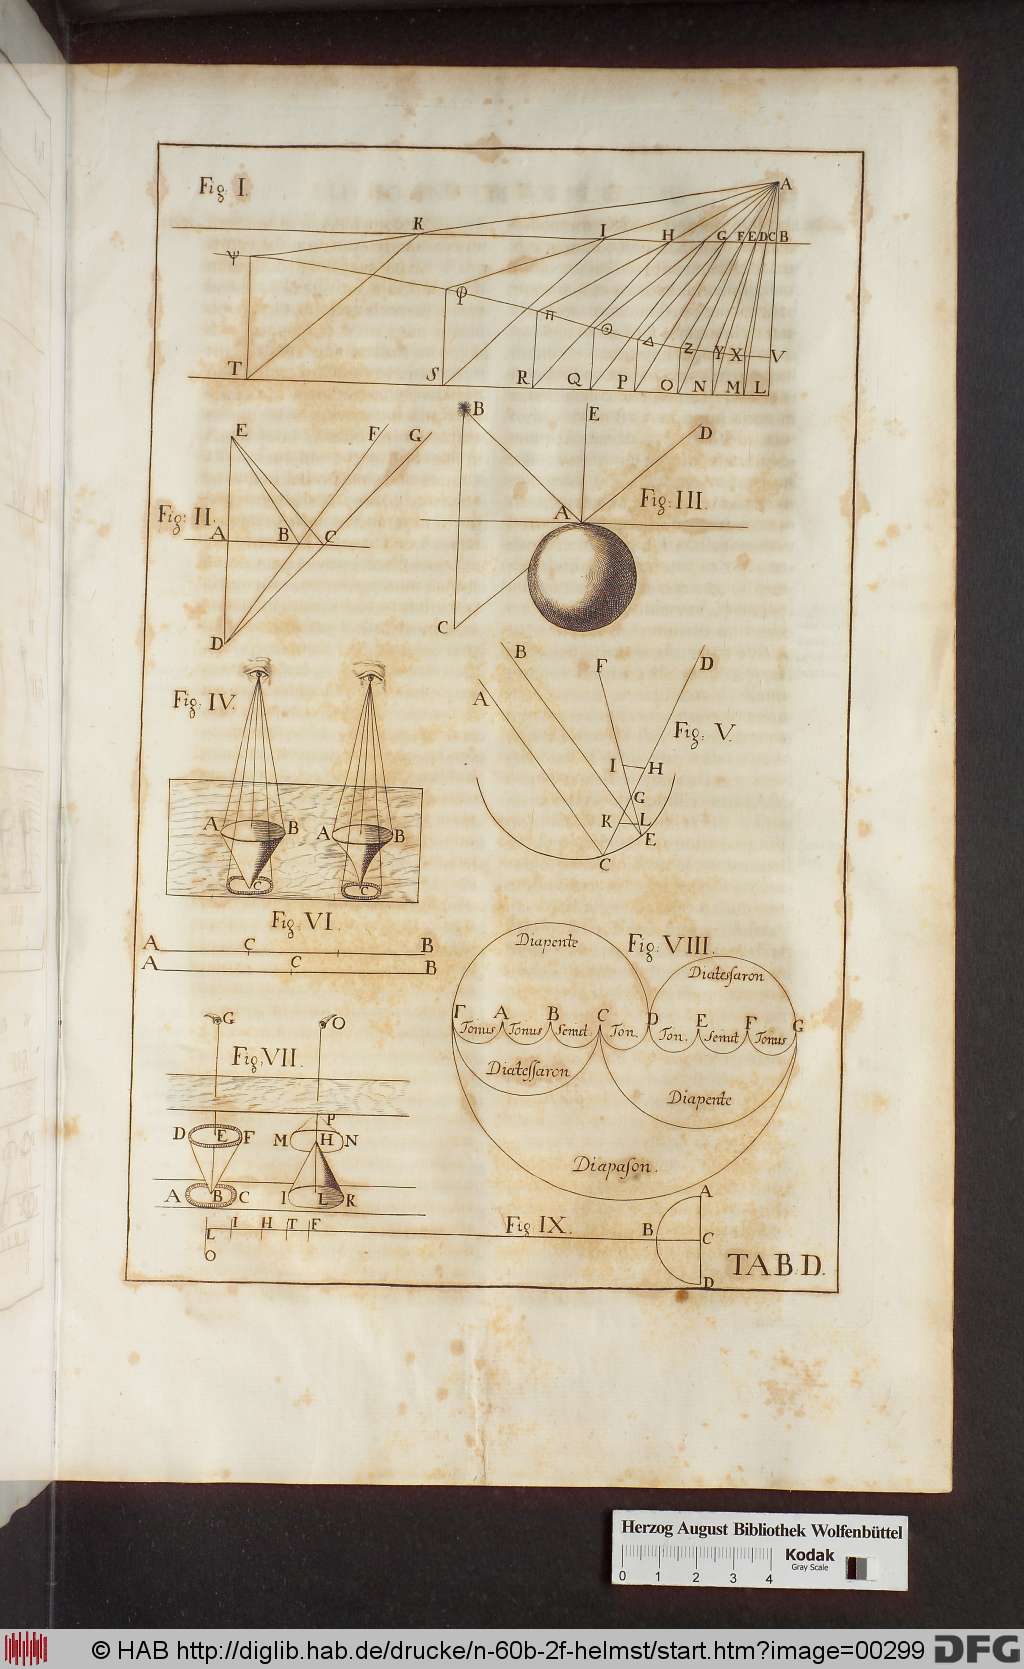 Fig: I.
A
K I H G F E D C B
Ψ φ π Θ Δ Z Y X V
T S R Q P O N M L
Fig: II.
E F G
A B C
D
Fig: III.
B E D
A
C
Fig: IV.
A B A B
C C
Fig: V.
B F D
A
I H
G
K L
E
C
Fig: VI.
A C B
A C B
Fig: VII.
G O
P
D E F M H N
A B C I L K
Fig: VIII.
Diapente
Diatessaron
Γ A B C D E F G
Tonus Tonus Semit. Ton. Ton. Semit Tonus
Diatessaron
Diapente
Diapason.
Fig IX.
A
L I H T F B C
O
D
TAB. D.
Herzog August Bibliothek Wolfenbüttel
0 1 2 3 4
Kodak
Gray Scale
© HAB http://diglib.hab.de/drucke/n-60b-2f-helmst/start.htm?image=00299
DFG